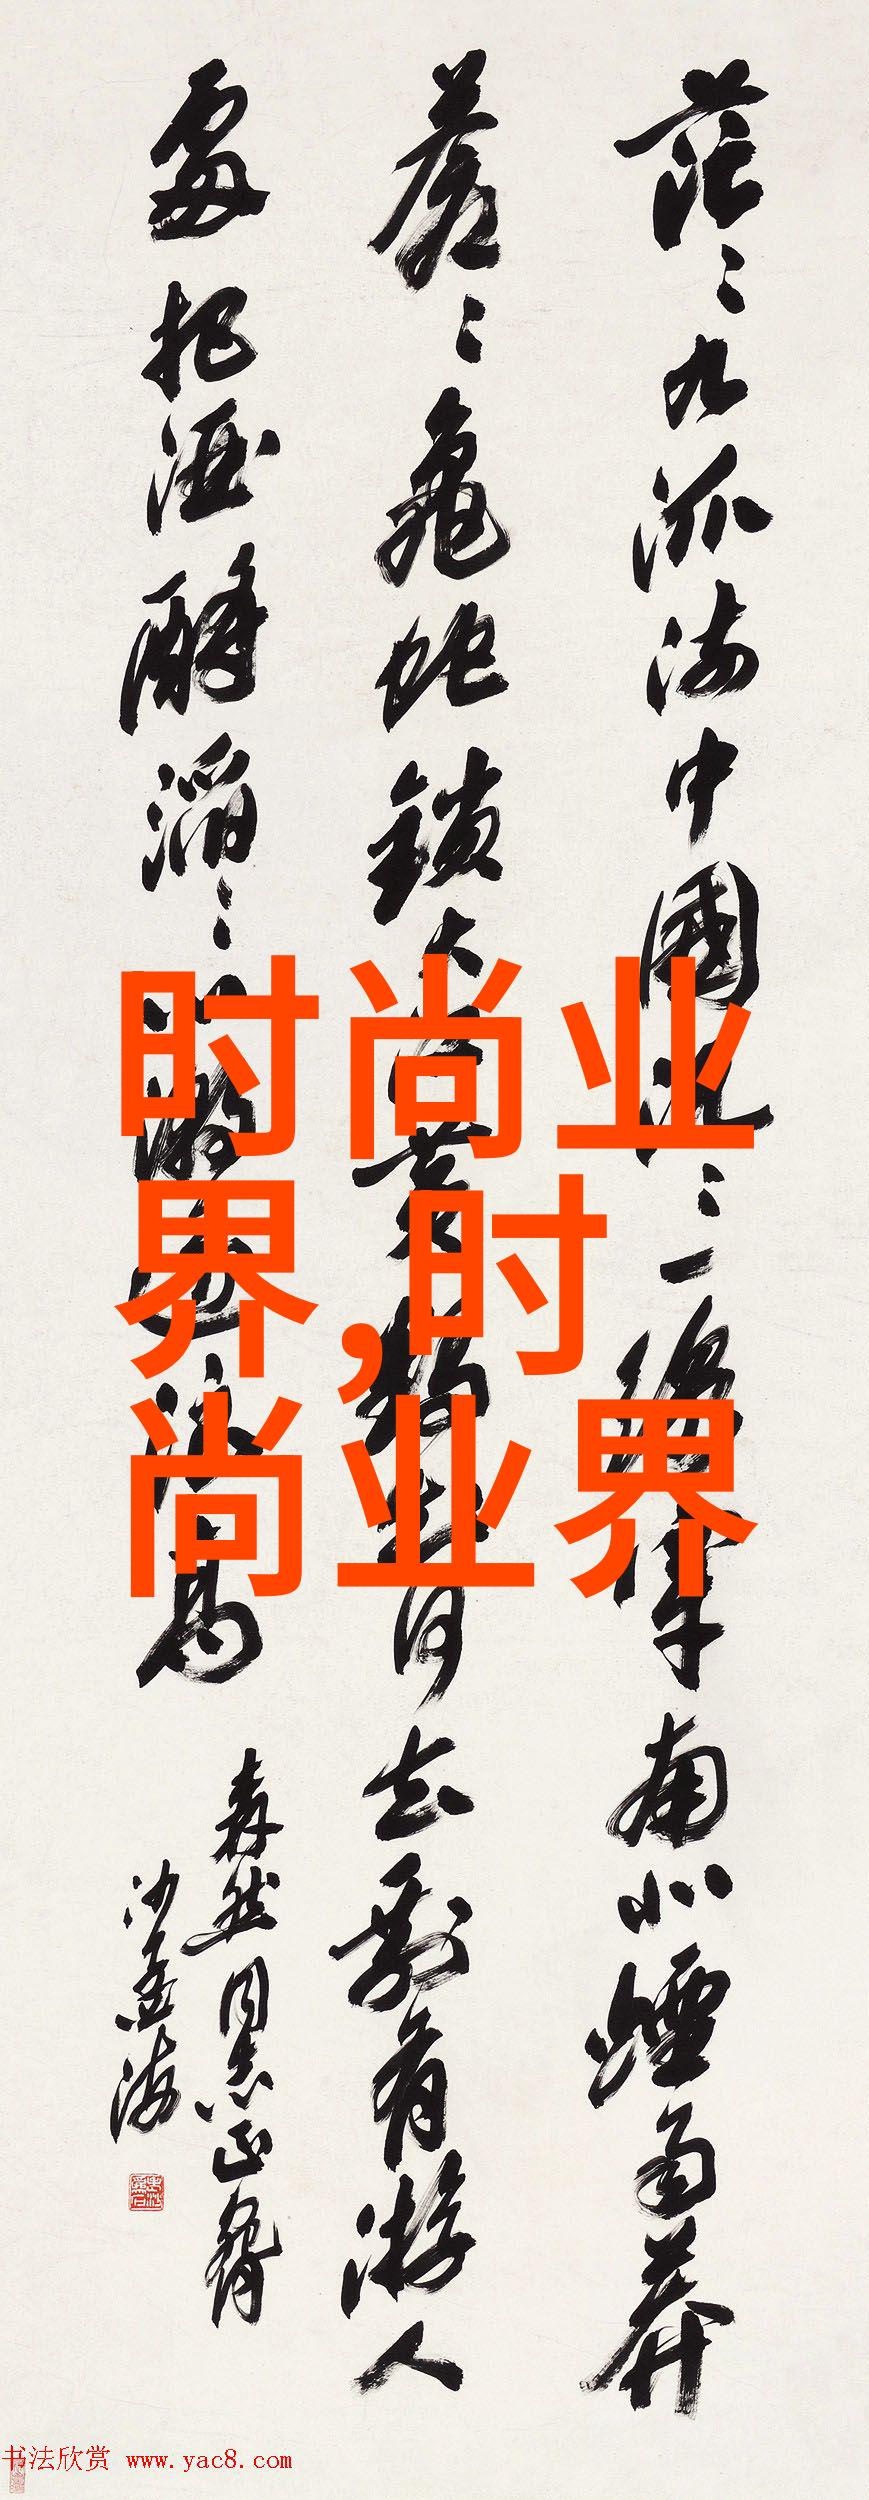 茫〻九派流中國沉〻一線穿南北煙雨莽
蒼〻龜蛇鎖大江黃鶴知何去剩有游人
處把酒酹滔〻心潮逐浪高
森然同志正
沙孟海
时尚业
界,时
尚业界
书法欣赏 www.yac8.com